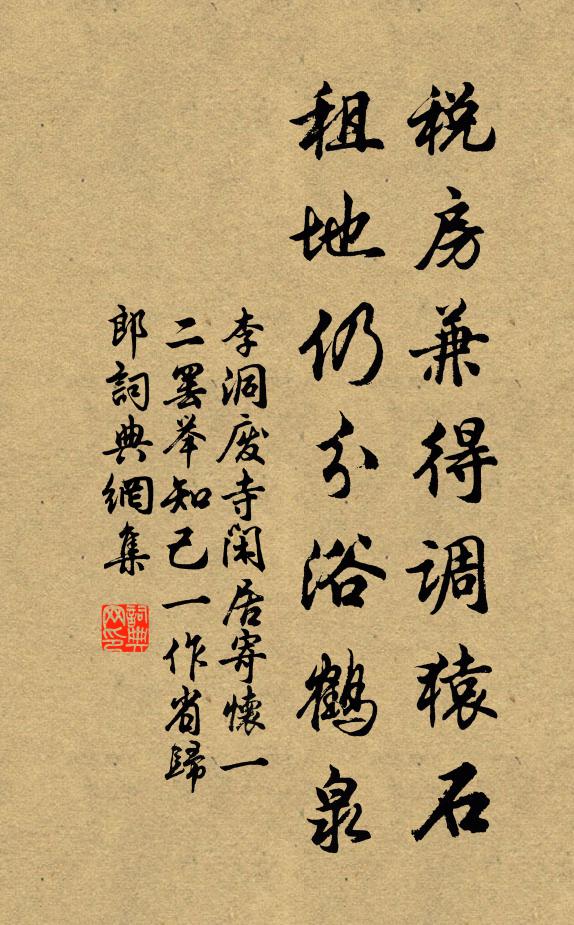 税房兼得调猿石
租地仍分浴鶴泉
李洞废寺闲居寄懷一
二罢举知己一作省歸
郎詞典網集
詞典网印